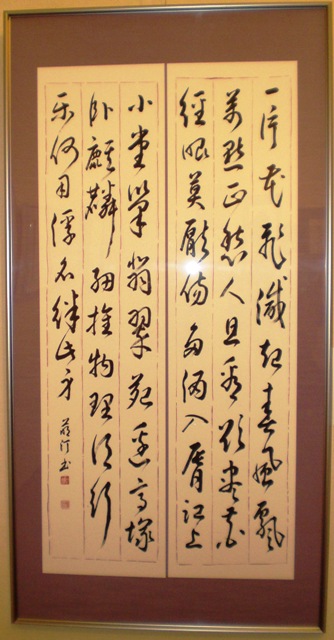 一片花飛減却春風飄
萬點正愁人且看欲盡花
經眼莫厭傷多酒入脣江上
小堂巢翡翠苑邊高塚
臥麒麟細推物理須行
樂何用浮名絆此身 書